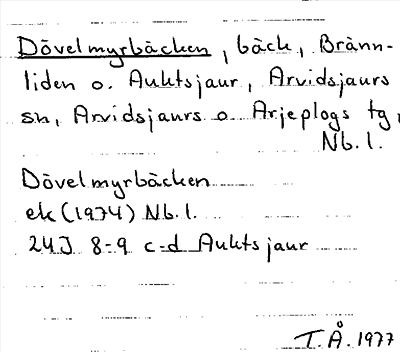 Dövelmyrbäcken, bäck, Bränn-
liden o. Auktsjaur, Arvidsjaurs
sn, Arvidsjaurs o. Arjeplogs tg,
Nb.l.
Dövelmyrbäcken
ek (1974) Nb.l.
24J 8-9 c-d Auktsjaur
T.Å. 1977